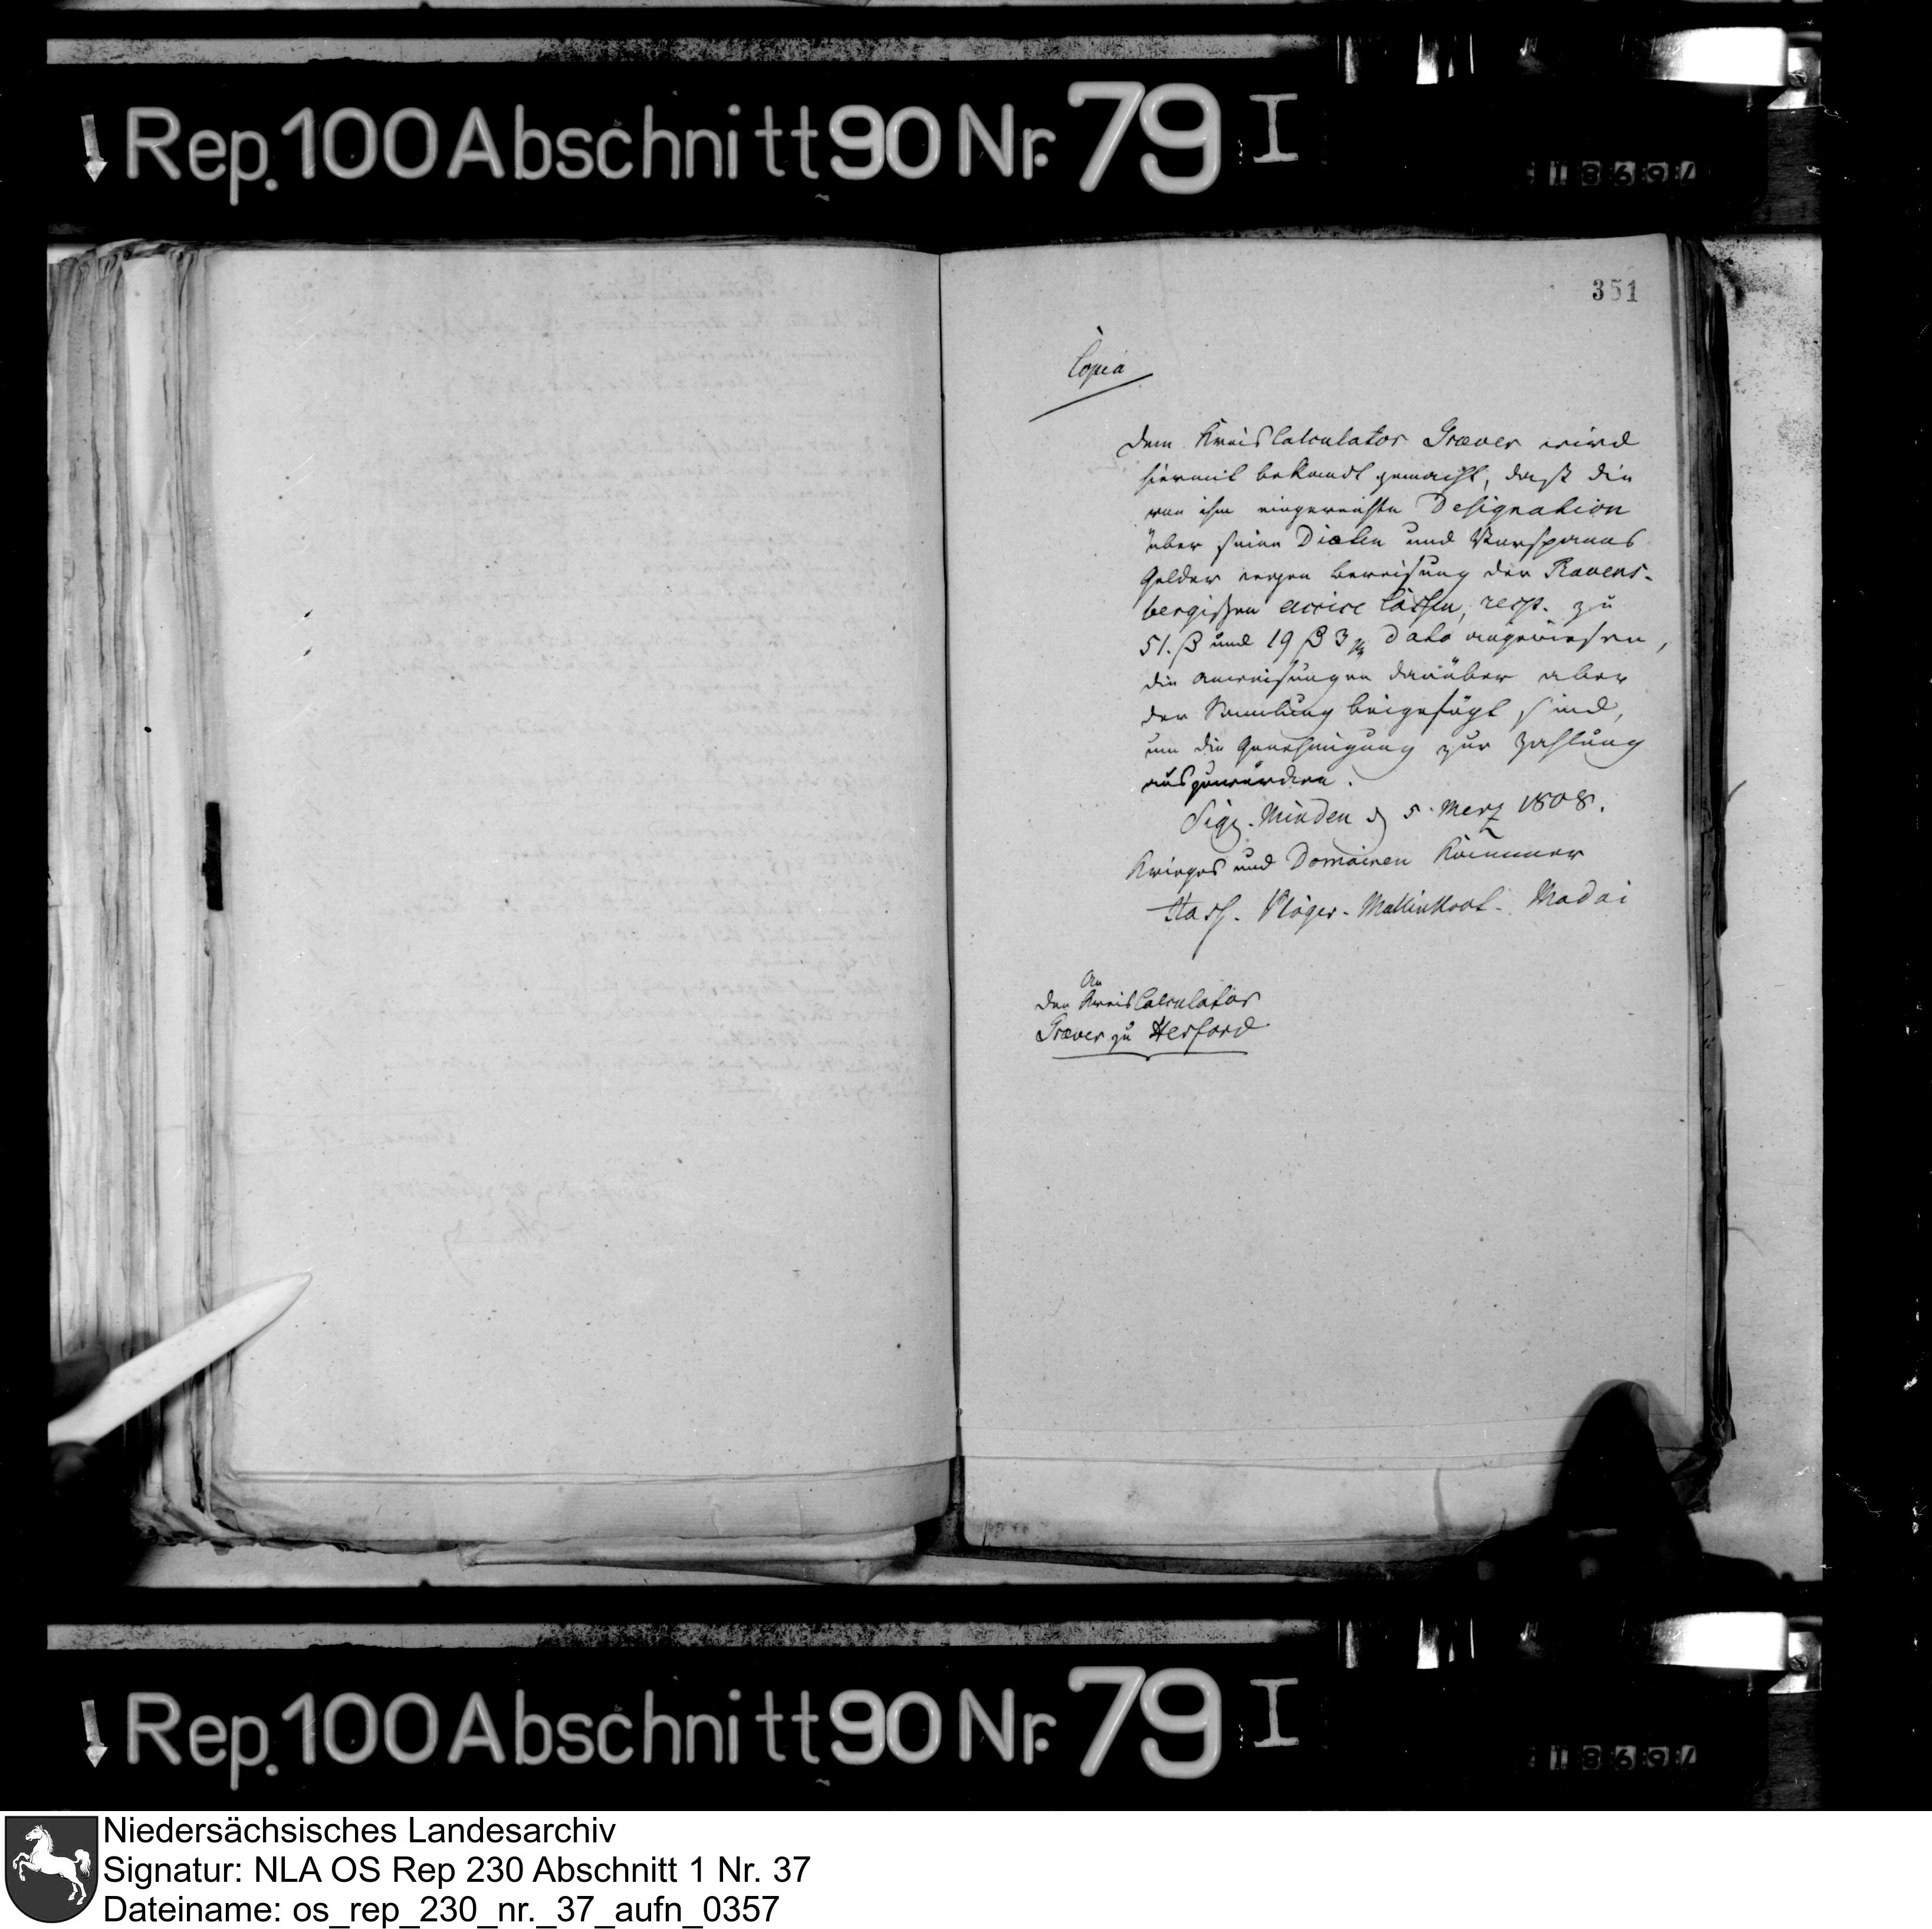 Rep. 100 Abschnitt 90 Nr. 79 I
1869
351
Copia
Dem Kreis Calculator Græver wird
hiermit bekandt gemacht, daß die
von ihm eingereichte Designation
über seine Diæten und Vorspanns
Gelder wegen Bereisung der Ravens-
bergischen accise Cassen, resp. zu
51. ß und 19 ß 3 dato angewiesen,
die anweisungen darüber aber
der beigefügt sind,
um die Genehmigung zur Zahlung
Sig. Minden d 5. Merz 1808.
Krieges und Domainen Kammer
Hass. Mallinkrot. Madai
An
den Kreis Calculator
Græver zu Herford
Rep. 100 Abschnitt 90 Nr. 79 I
1869
Niedersächsisches Landesarchiv
Signatur: NLA OS Rep 230 Abschnitt 1 Nr. 37
Dateiname: os_rep_230_nr._37_aufn_0357